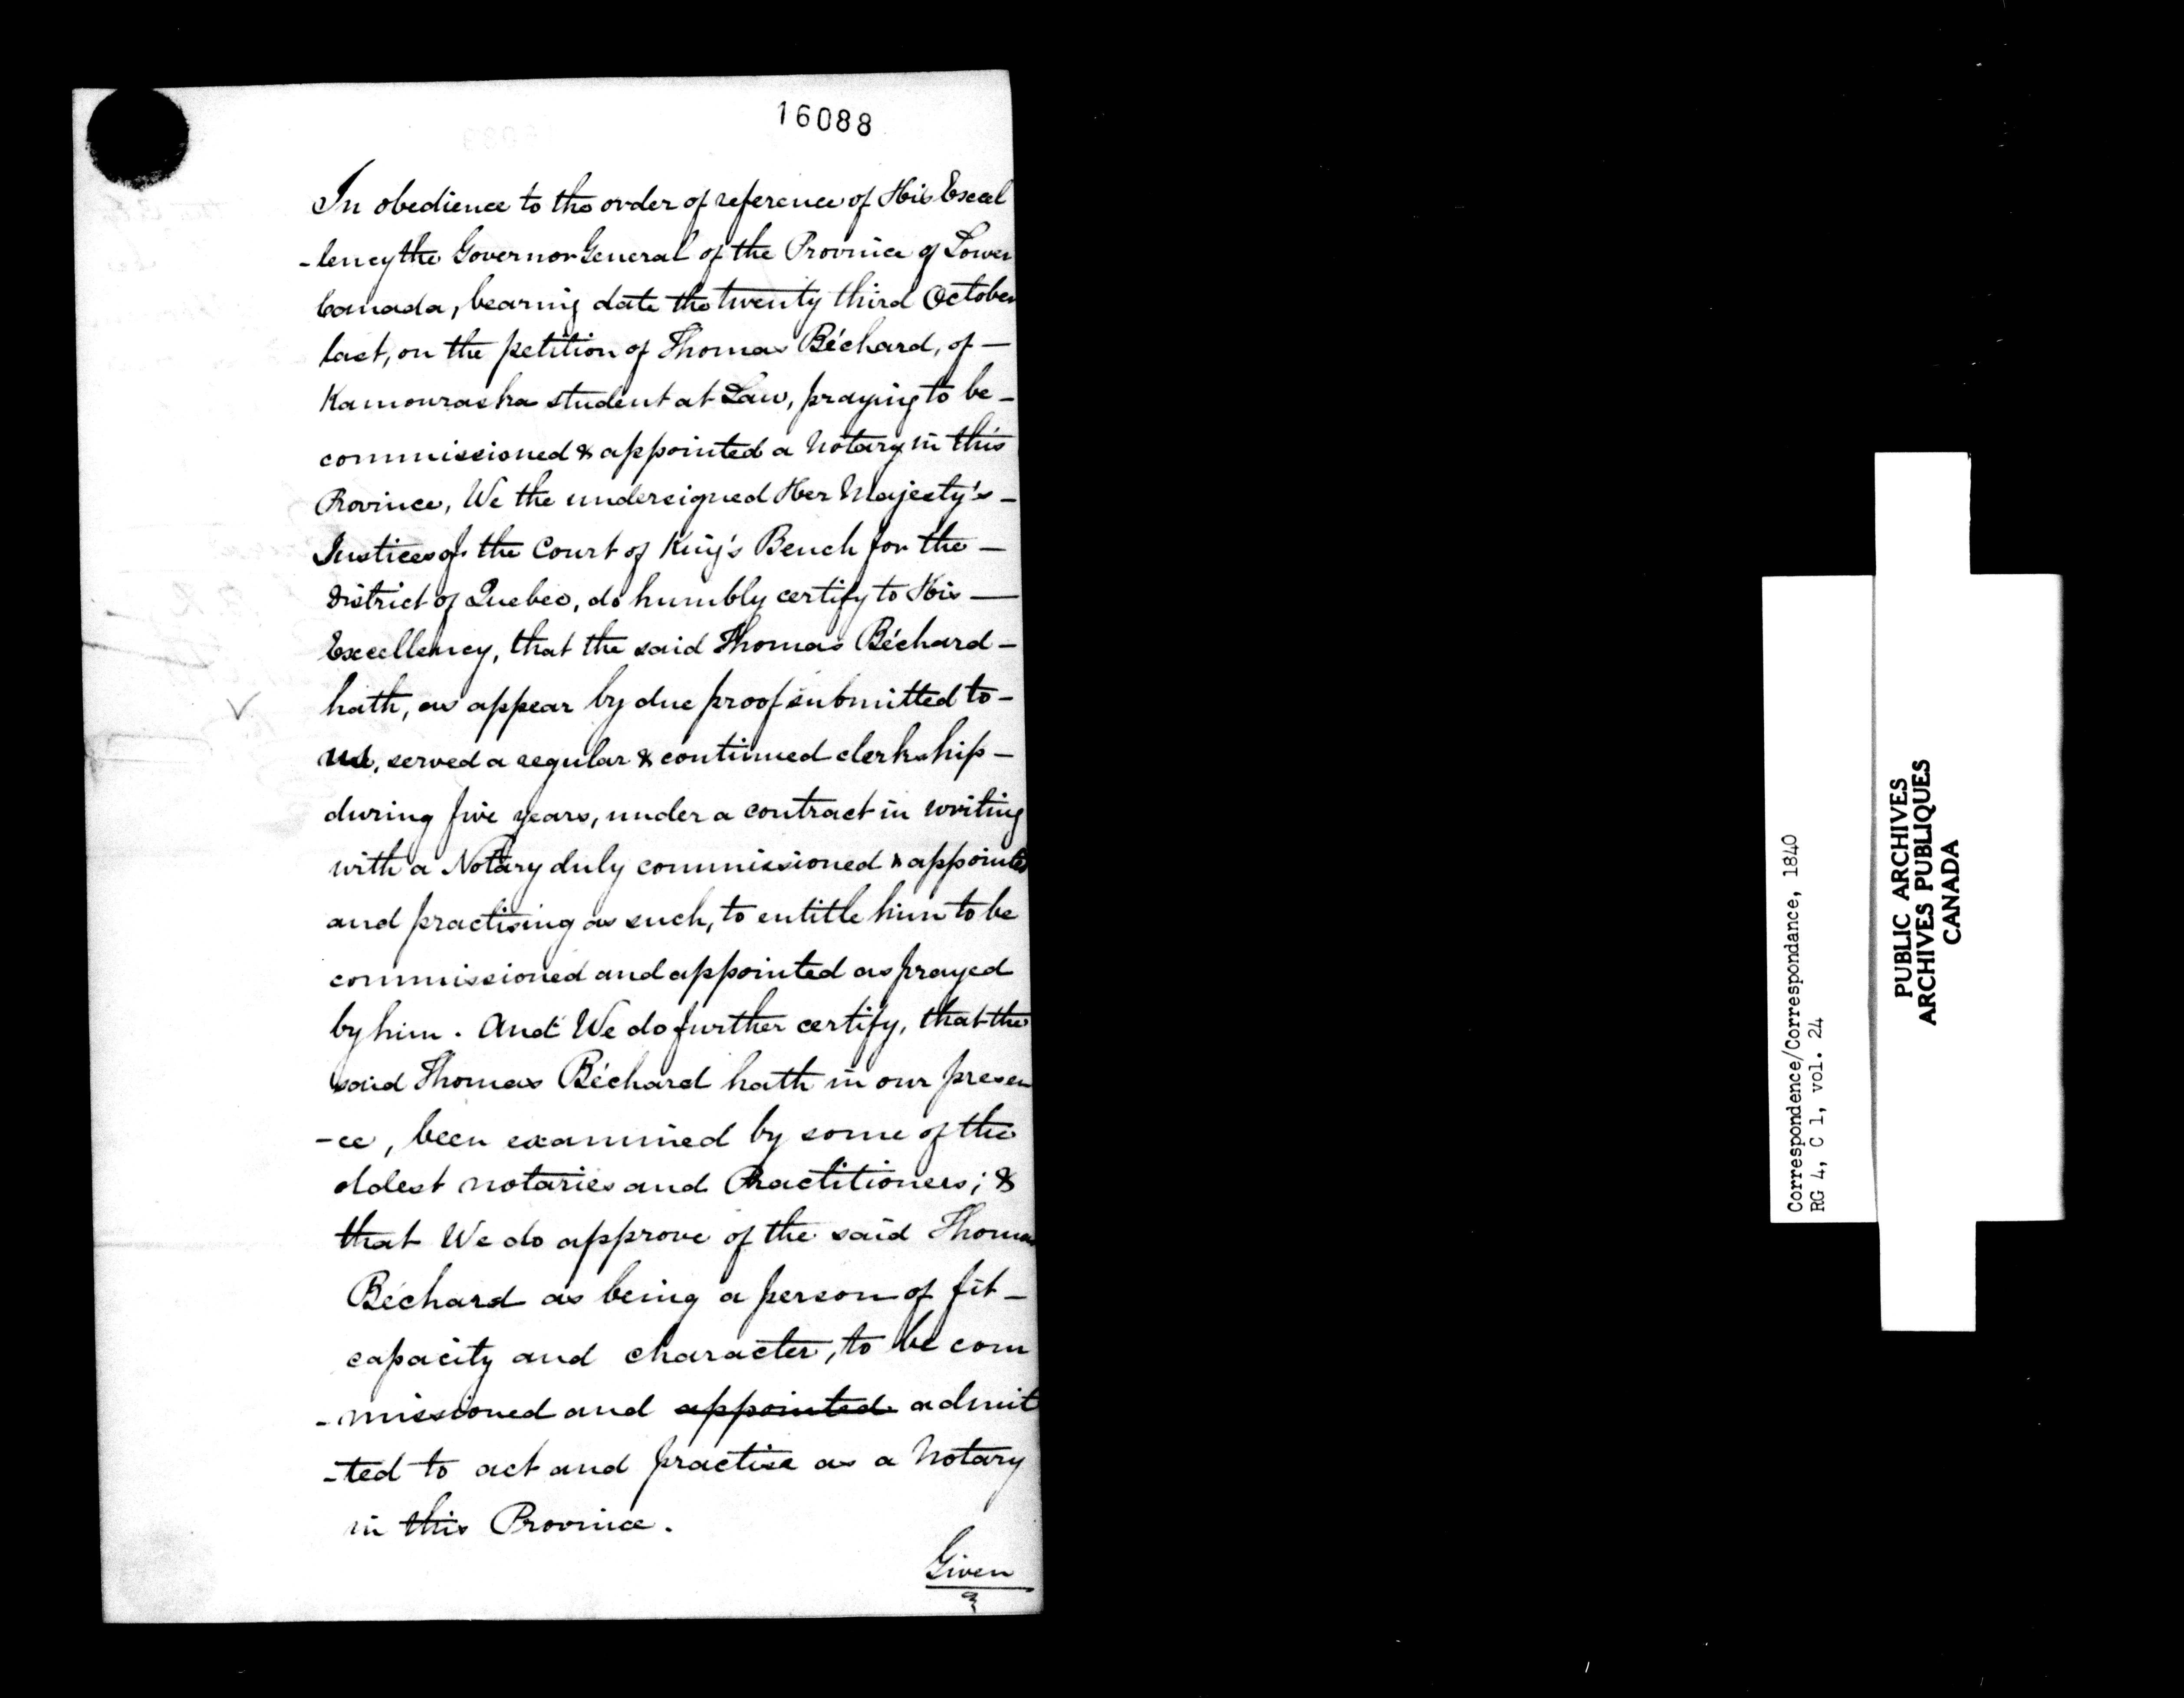 16088
In obedience to the order of reference of His Excel
-lency the Governor General of the Province of Lower
Canada, bearing date the twenty third October
last, on the petition of Thomas Béchard, of —
Kamouraska student at Law, praying to be —
commissioned & appointed a Notary in this
Province, We the undersigned Her Majesty's —
Justices of the Court of King's Bench for the —
District of Quebec, do humbly certify to His —
Excellency, that the said Thomas Béchard —
hath, as appear by due proof submitted to —
us, served a regular & continued clerkship —
during five years, under a contract in writing
with a Notary duly commissioned & appointed
and practising as such, to entitle him to be
commissioned and appointed as prayed
by him. And We do further certify, that the
said Thomas Béchard hath in our presen
-ce, been examined by some of the
oldest notaries and Practitioners; &
that We do approve of the said Thomas
Béchard as being a person of fit —
capacity and character, to be com
-missioned and appointed admit
-ted to act and practise as a Notary
in this Province.
Given
Correspondence/Correspondance, 1840
RG 4, C 1, vol. 24
PUBLIC ARCHIVES
ARCHIVES PUBLIQUES
CANADA